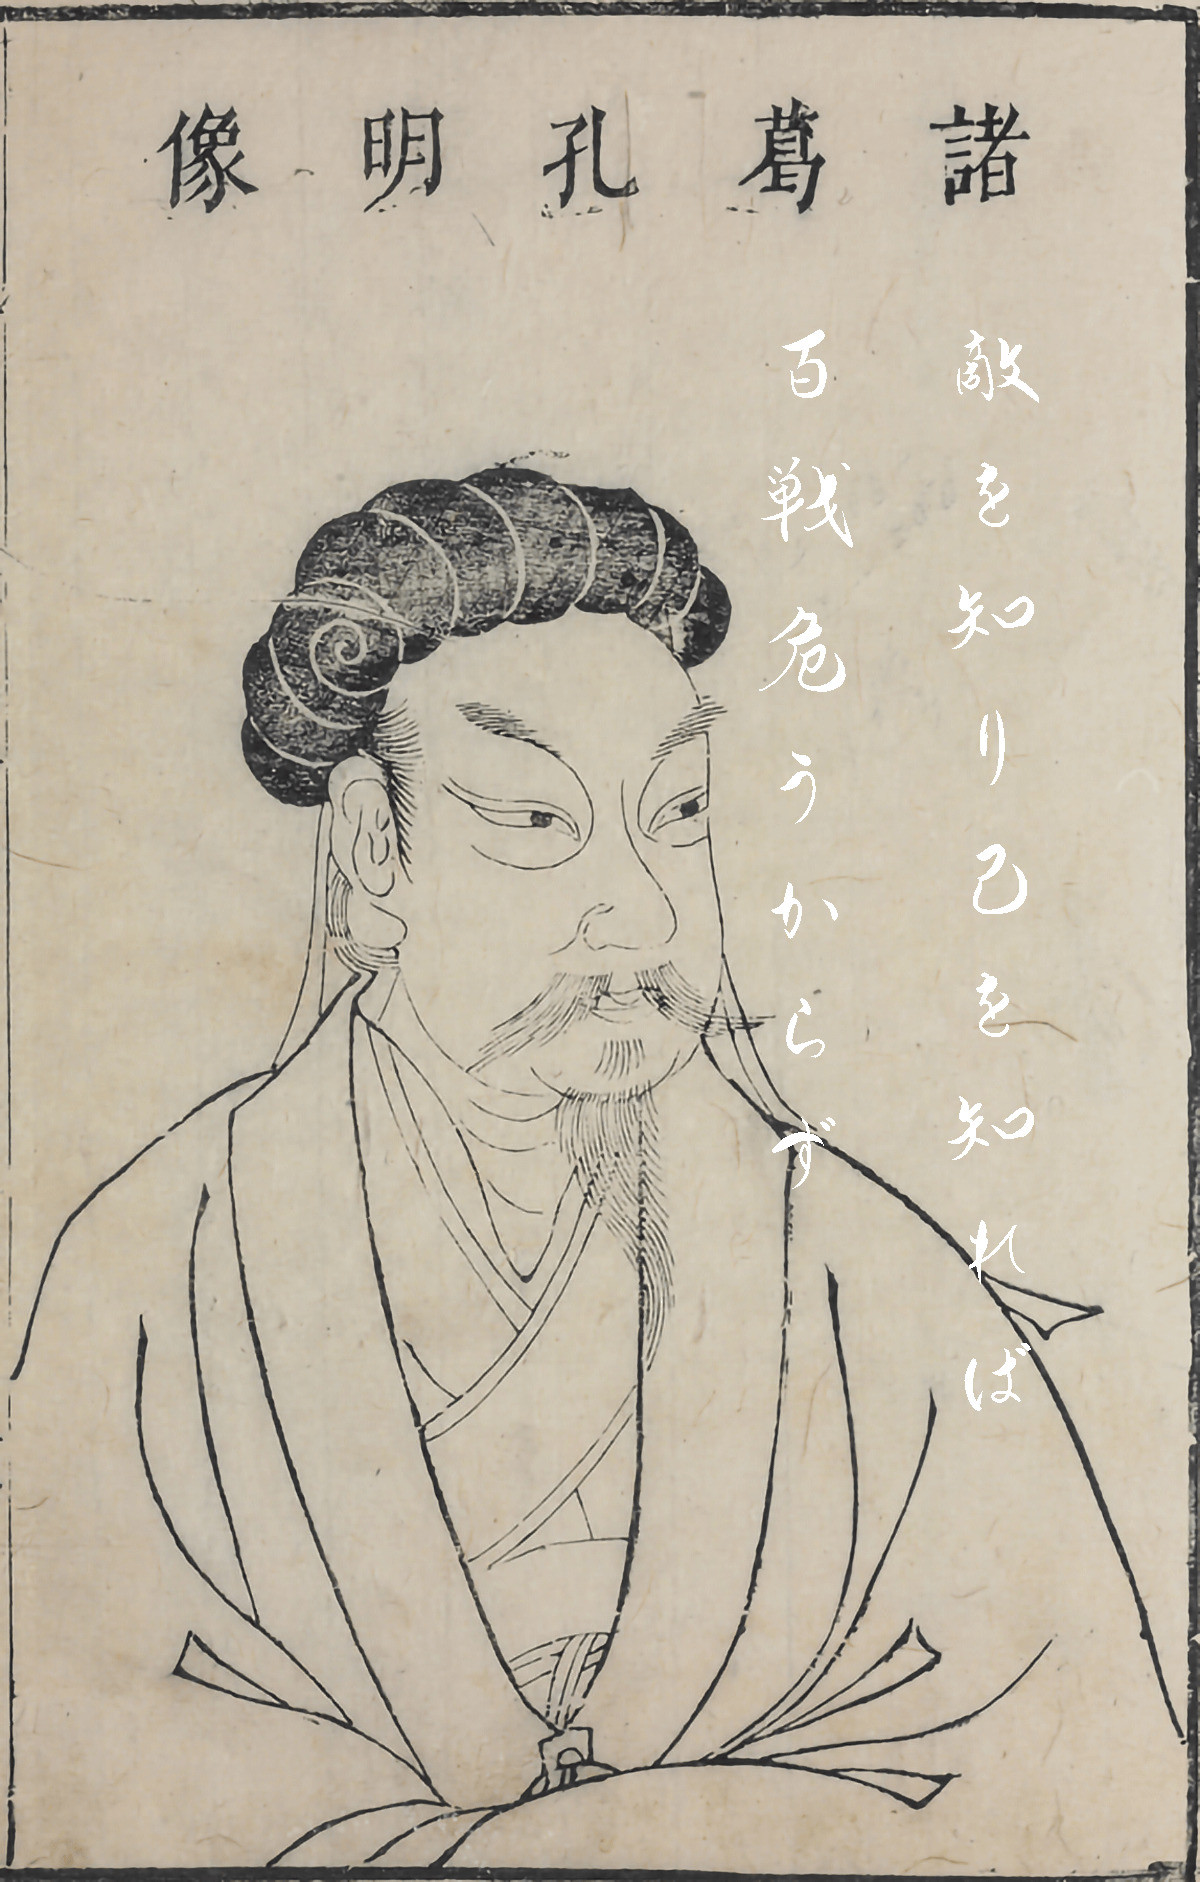 諸葛孔明像
敵を知り己を知れば
百戦危うからず